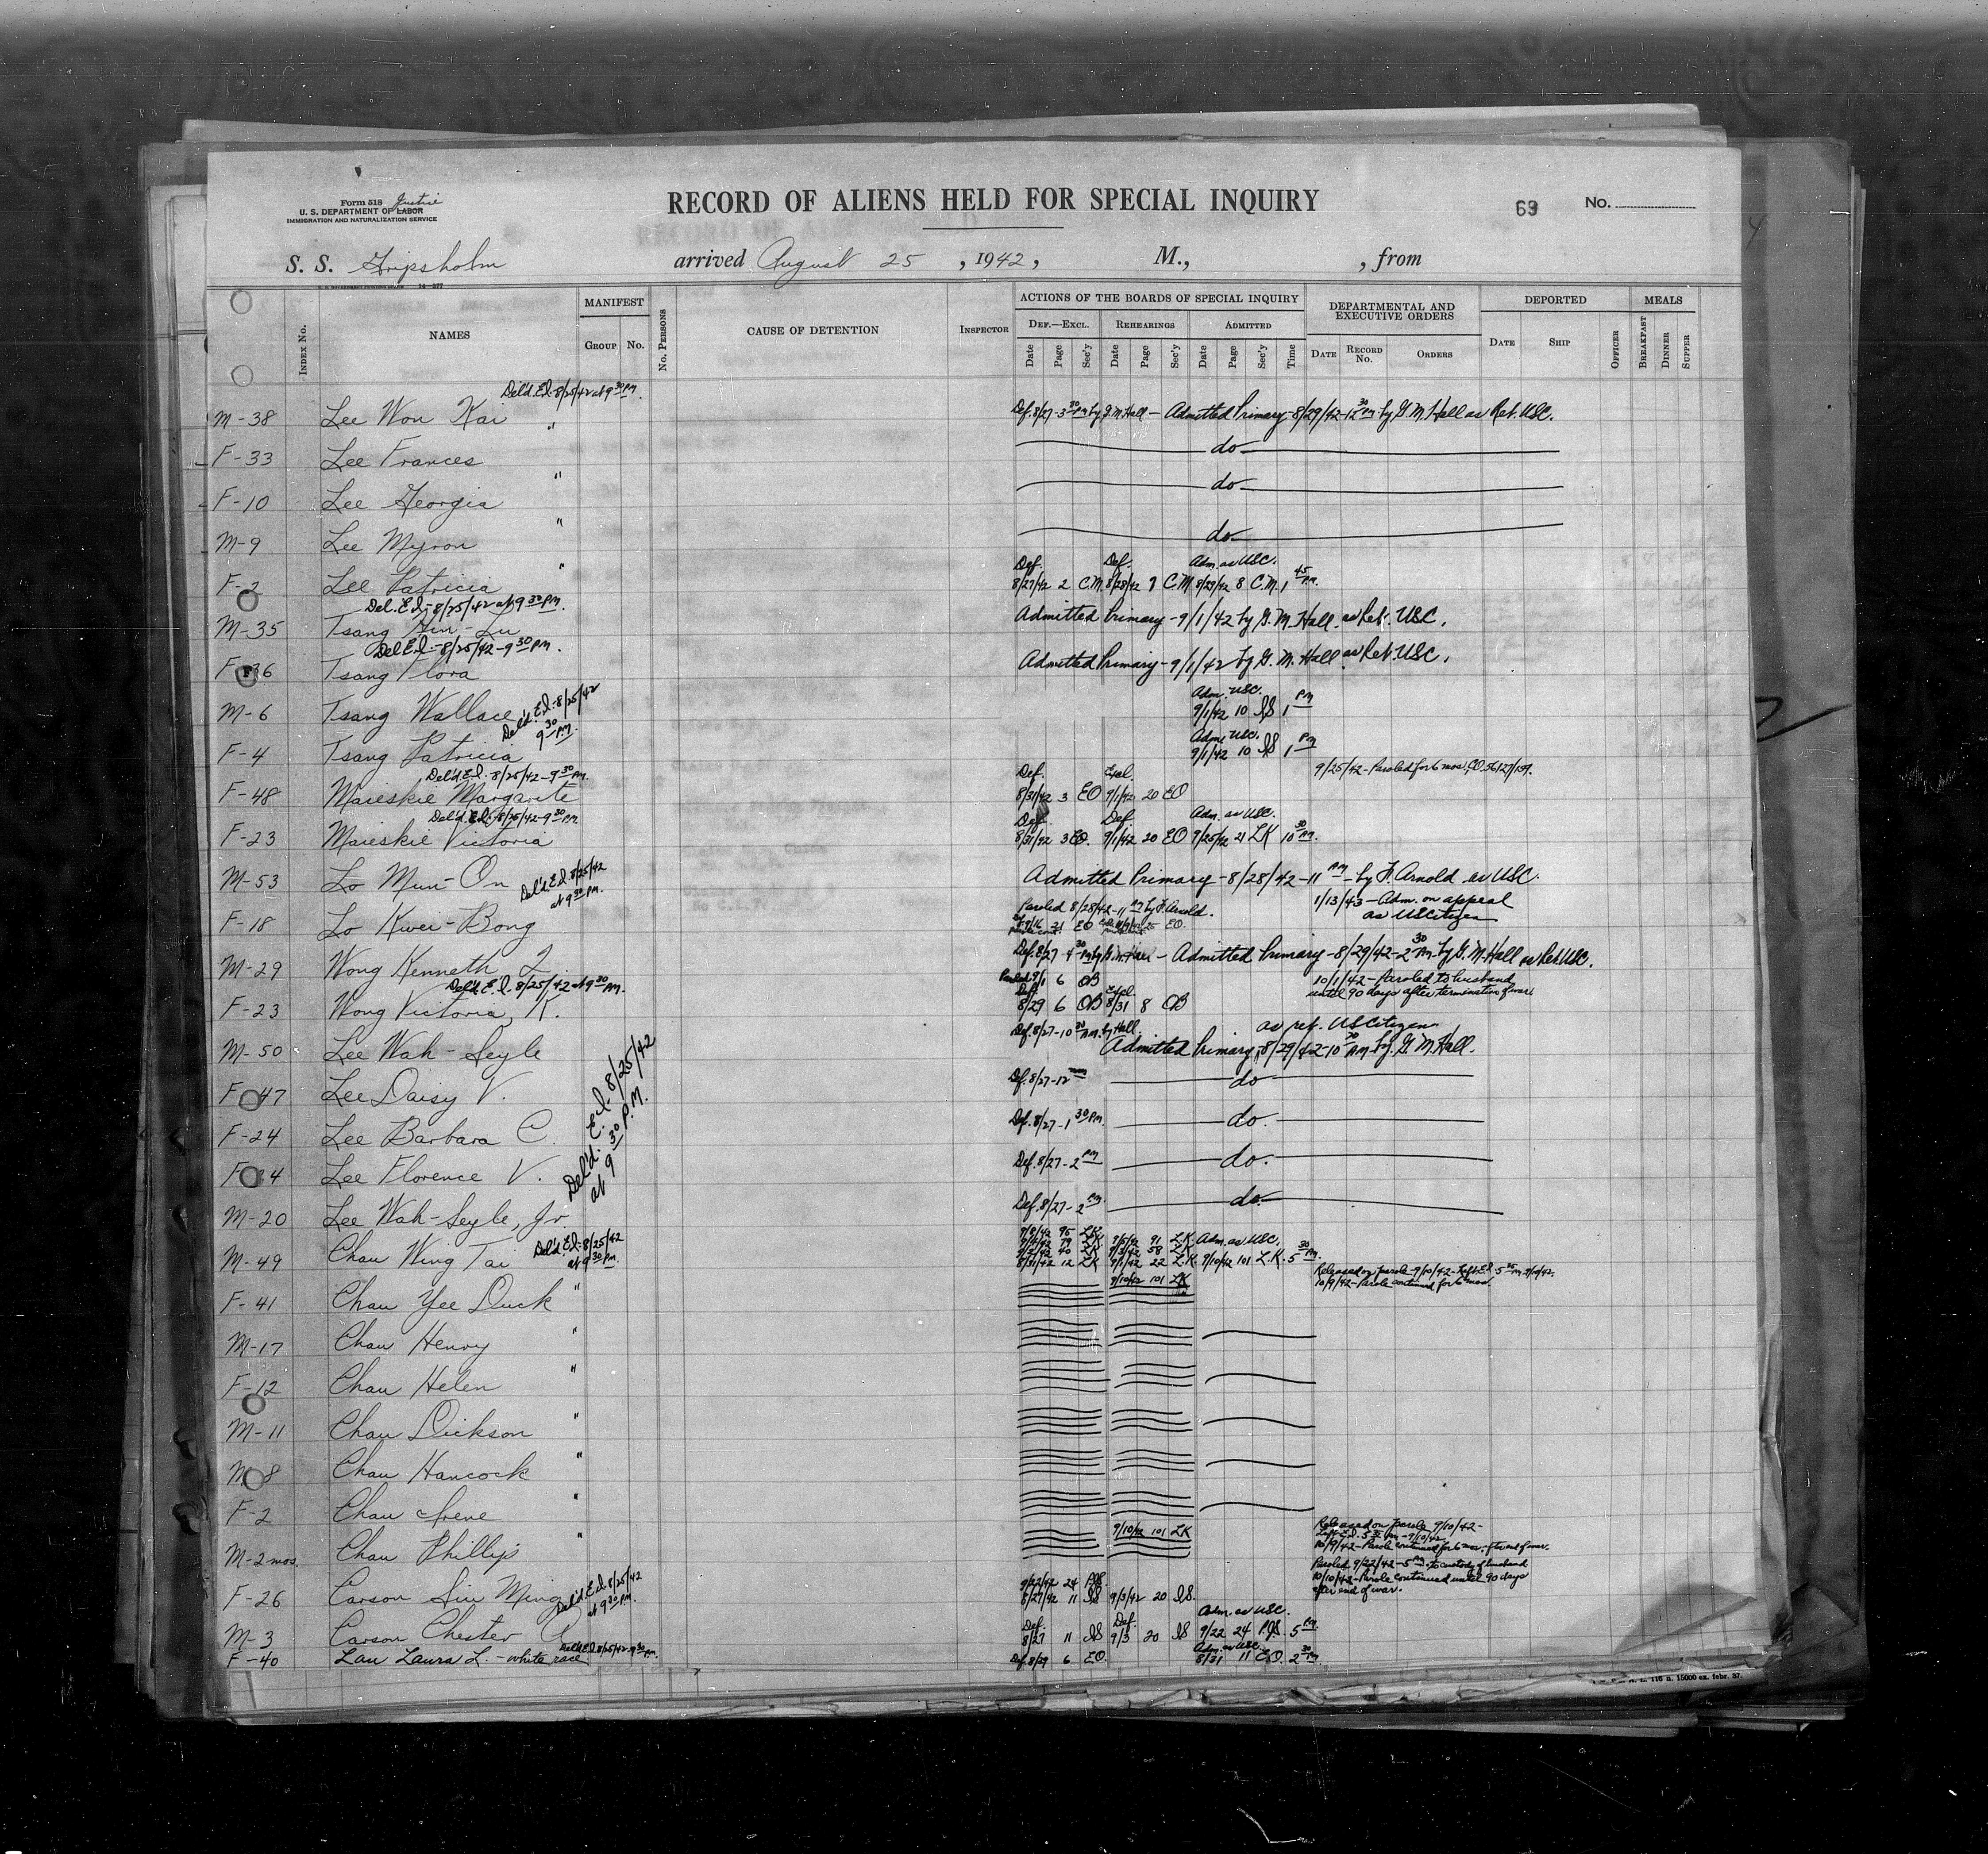 Form 518 Justice
U. S. DEPARTMENT OF LABOR
IMMIGRATION AND NATURALIZATION SERVICE
RECORD OF ALIENS HELD FOR SPECIAL INQUIRY
69 No.
S. S. Gripsholm arrived August 25, 1942, M., , from
INDEX No. NAMES MANIFEST GROUP No. No. PERSONS CAUSE OF DETENTION INSPECTOR
ACTIONS OF THE BOARDS OF SPECIAL INQUIRY
DEF.—EXCL. REHEARINGS ADMITTED
Date Page Sec'y Date Page Sec'y Date Page Sec'y Time
DEPARTMENTAL AND EXECUTIVE ORDERS
DATE RECORD No. ORDERS
DEPORTED
DATE SHIP OFFICER
MEALS
BREAKFAST DINNER SUPPER
Del'd. E.I. 8/25/42 at 9 30 PM.
M-38 Lee Won Kai Def. 8/27-3 30 PM by G. M. Hall - Admitted Primary-8/29/42-12 30 PM by G. M. Hall as Ret. USC.
F-33 Lee Frances " do
F-10 Lee Georgia " do
M-9 Lee Myron " do
Def. Def. Adm. as USC.
F-2 Lee Patricia " 8/27/42 2 C.M. 8/28/42 7 C.M. 8/29/42 8 C.M. 1 45 PM.
Del. E.I.-8/25/42 at 9 30 PM.
M-35 Tsang Admitted Primary-9/1/42 by G. M. Hall. as Ret. USC.
Del E.I.-8/25/42-9 30 PM.
F-36 Tsang Flora Admitted Primary-9/1/42 by G. M. Hall as Ret. USC.
Adm. USC.
M-6 Tsang Wallace Del'd. E.I.-8/25/42 9 30 PM. 9/1/42 10 IS 1 PM
Adm. USC.
F-4 Tsang Patricia 9/1/42 10 IS 1 PM
Del'd. E.I. 8/25/42-9 30 PM. Def. Excl. 9/25/42-Paroled for 6 mos. CO. 56127/159.
F-48 Maieskie Margarite 8/31/42 3 EO 9/1/42 20 EO
Del'd. E.I. 8/25/42-9 30 PM. Def. Def. Adm. as USC.
F-23 Maieskie Victoria 8/31/42 3 EO. 9/1/42 20 EO 9/25/42 21 LK 10 30
M-53 Lo Mun-On Del'd. E.I. 8/25/42 at 9 30 PM. Admitted Primary-8/28/42-11 PM-by F. Arnold as USC.
Paroled 8/28/42-11 by F. Arnold. 1/13/43-Adm. on appeal as US Citizen
F-18 Lo Kwei-Bong
M-29 Wong Kenneth J. Def. 8/27-4 30 PM by G. M. Hall - Admitted Primary-8/29/42-2 30 PM. by G. M. Hall as Ret. USC.
Del'd. E.I. 8/25/42 at 9 30 PM. Paroled 9/1 6 OB 10/1/42-Paroled to husband
Def. Excl. until 90 days after termination of war.
F-23 Wong Victoria K. 8/29 6 OB 8/31 8 OB
Def. 8/27-10 30 AM. by Hall. as ret. US Citizen
M-50 Lee Wah-Seyle Admitted Primary, 8/29/42-10 30 AM by. G. M. Hall.
F-47 Lee Daisy V. Def. 8/27-12 do
F-24 Lee Barbara C. Def. 8/27-1 30 PM. do.
Del'd. E.I. 8/25/42 at 9 30 P.M.
F-14 Lee Florence V. Def. 8/27-2 PM do.
M-20 Lee Wah-Seyle, Jr. Def. 8/27-2 PM. do.
9/9/42 95 LK
79 LK 9/5/42 91 LK Adm. as USC.
9/2/42 40 LK 9/3/42 58 LK
M-49 Chau Wing Tai Del'd. E.I. 8/25/42 at 9 30 PM. 8/31/42 12 LK 9/1/42 22 L.K. 9/10/42 101 L.K. 5 30 PM.
9/10/42 101 LK Released on parole-9/10/42-Left E.I. 5 PM 9/10/42.
10/9/42-Parole continued for 6 mos.
F-41 Chau Yee Duck "
M-17 Chau Henry "
F-12 Chau Helen "
M-11 Chau Dickson "
M-8 Chau Hancock "
F-2 Chau Irene "
9/10/42 101 LK Released on parole 9/10/42-
Left E.I. 5 PM-9/10/42
10/9/42-Parole continued for 6 mos. after end of war.
M-2 mos. Chau Phillip "
Paroled 9/22/42-5 PM to custody of husband
9/22/42 24 PJS. 10/10/42-Parole continued until 90 days after end of war.
F-26 Carson Siu Ming Del'd. E.I. 8/25/42 at 9 30 PM. 8/27/42 11 IS 9/3/42 20 IS.
Def. Def. Adm. as USC.
M-3 Carson Chester 8/27 11 IS 9/3 20 IS 9/22 24 PJS. 5 PM
Del'd E.I. 8/25/42-9 30 PM. Adm. as USC.
F-40 Lau Laura L. - white race Def. 8/29 6 EO. 8/31 11 E.O. 2 30 PM.
116 u. 15000 ex. febr. 37.